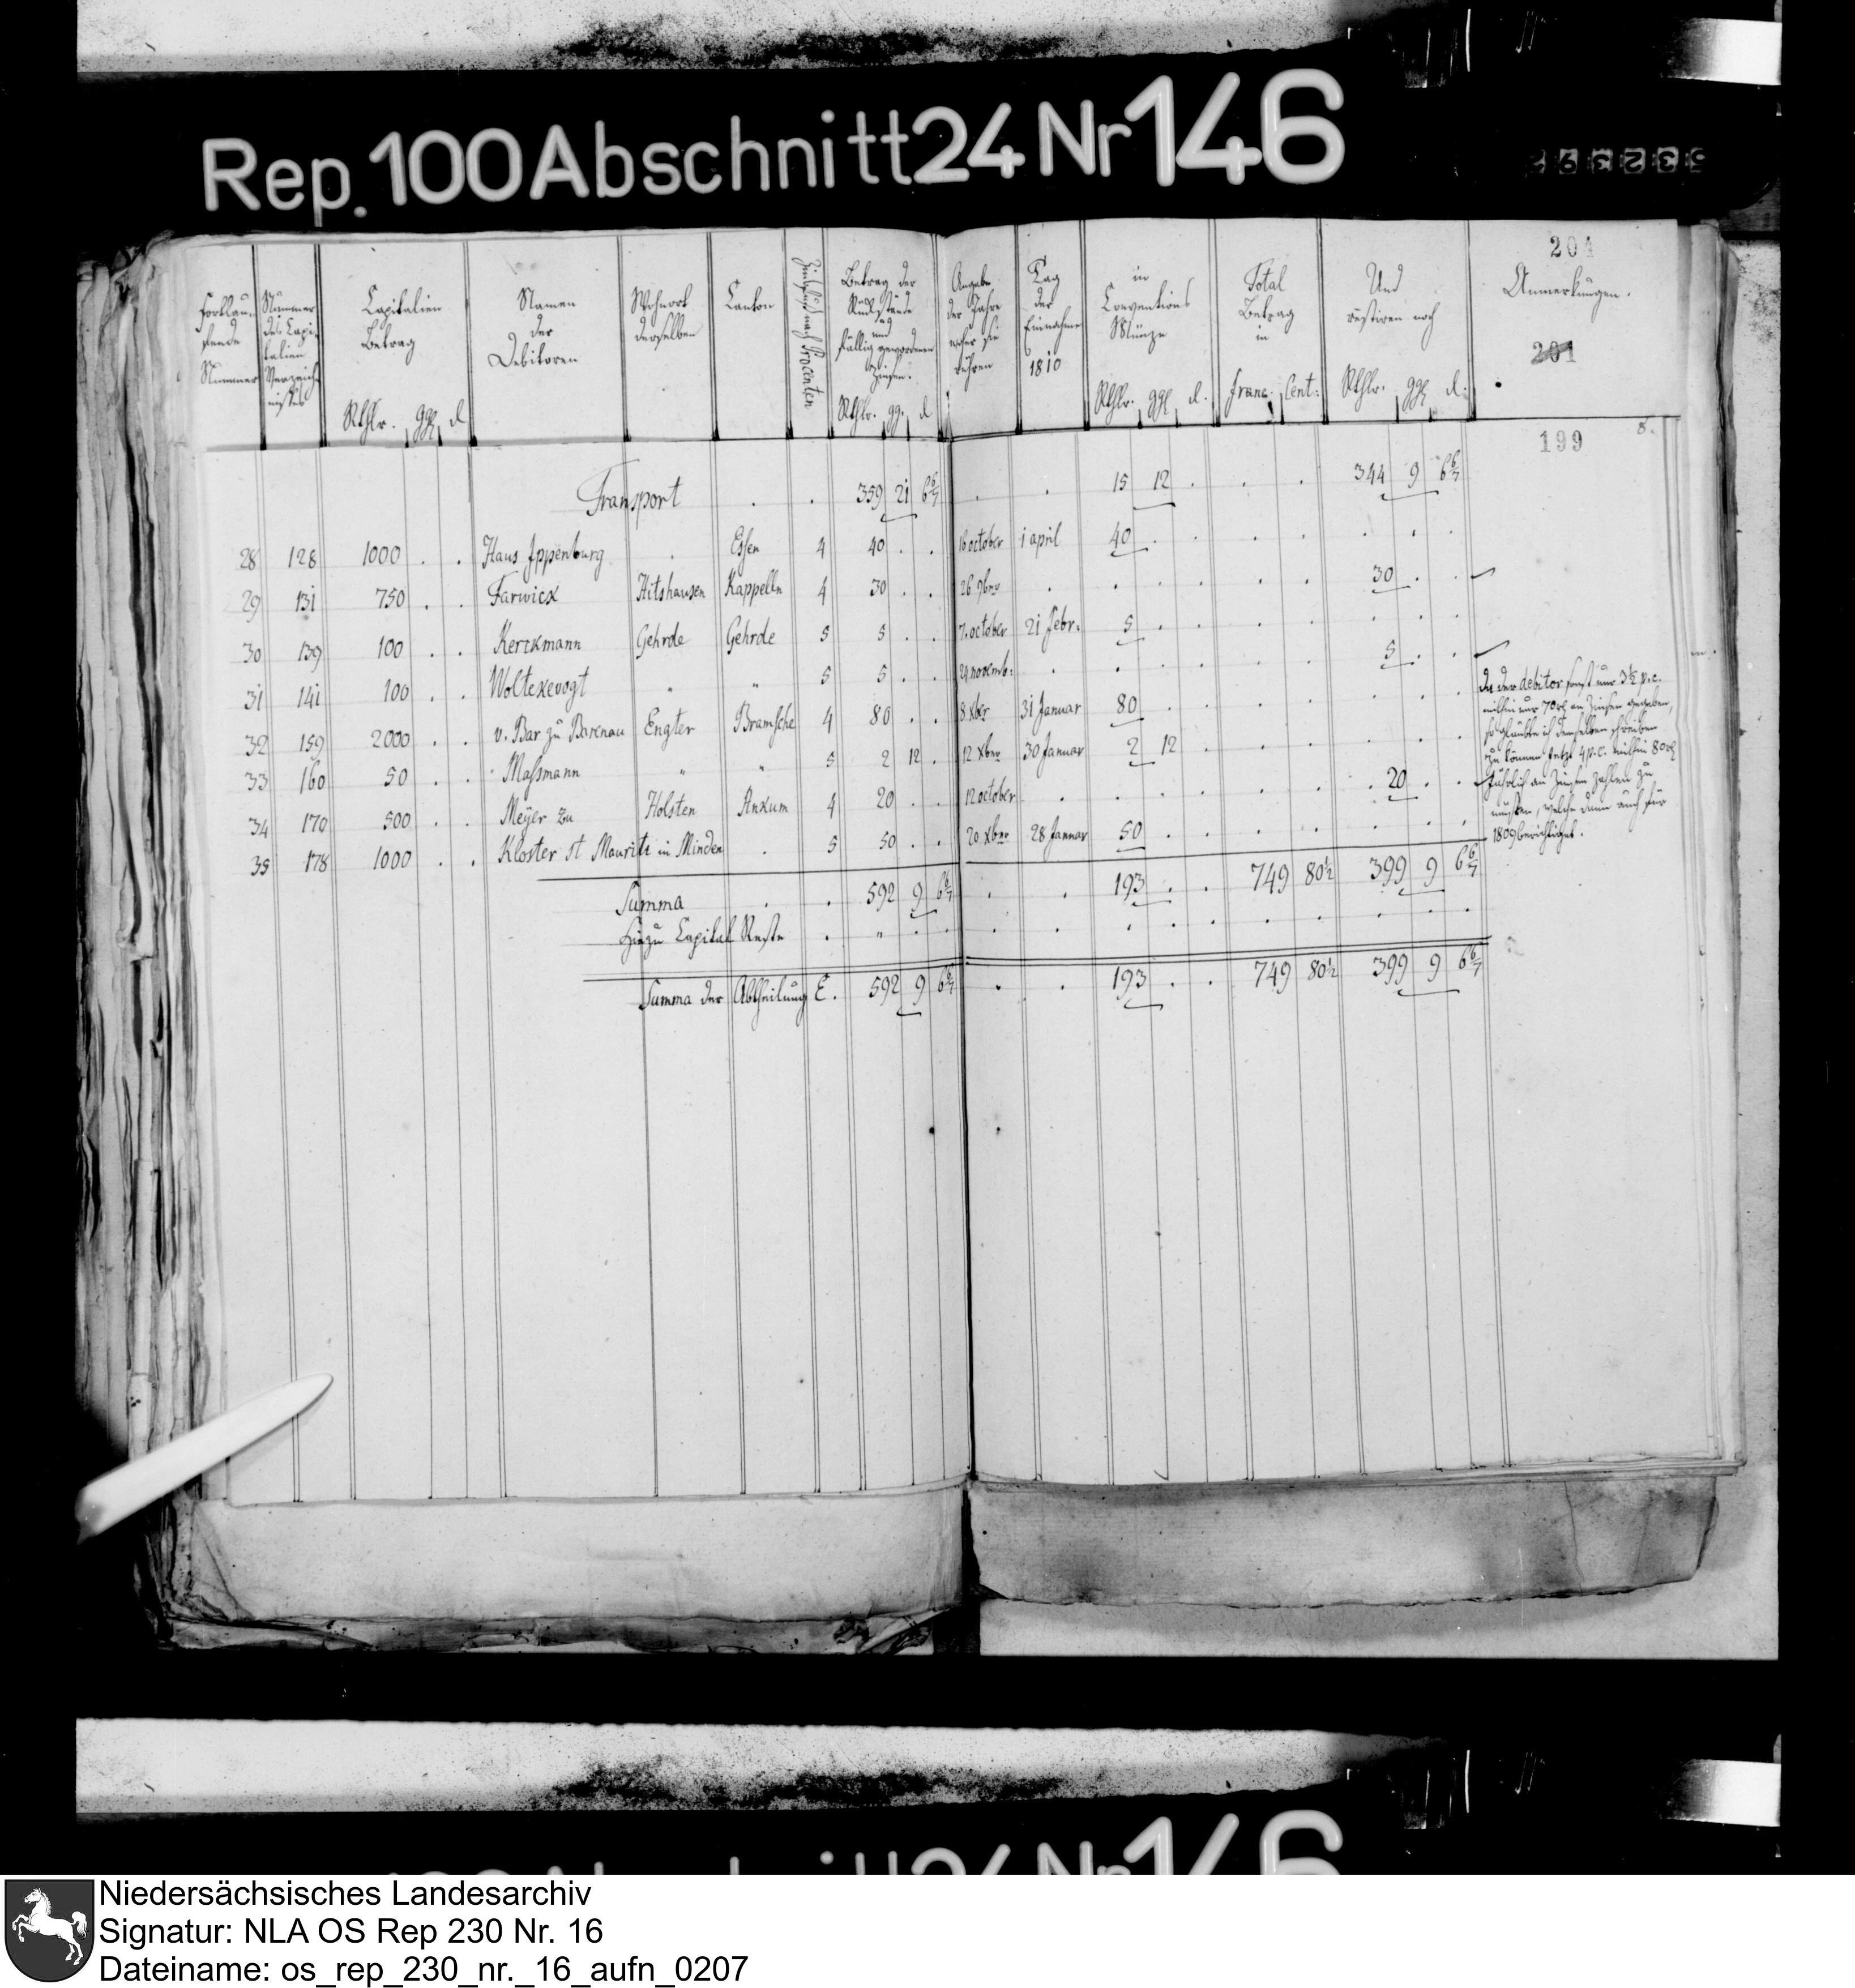 Rep. 100 Abschnitt 24 Nr 146
204
201
199
8.
Fortlau-
fende
Nummer
Nummer
des Capi-
talien
Verzeich-
nisses
Capitalien
Betrag
Rthlr. ggl d
Namen
der
Debitoren
Wohnort
derselben
Canton
Zinsfuß nach Procenten
Betrag der
Rückstände
und
fällig gewordenen
Zinsen.
Rthlr. gg. d
Angabe
der Jahre
woher sie
rühren
Tag
der
Einnahme
1810
in
Conventions
Münze
Rthlr. ggl d.
Total
Betrag
in
franc. Cent:
Und
restiren noch
Rthlr. ggl d.
Anmerkungen.
Transport . . 359 21 6 6/7 . . 15 12 . . . 344 9 6 6/7
28 128 1000 . . Haus Ippenburg . Essen 4 40 . . 16 october 1 april 40 . . . . . . .
29 131 750 . . Farwick Hitshausen Kappelln 4 30 . . 26 9ber . . . . . . 30 . .
30 139 100 . . Kerckmann Gehrde Gehrde 5 5 . . 7. october 21 Febr: 5 . . . . . . .
31 141 100 . . Woltekevogt " " 5 5 . . 29 novemb: . . . . . . 5 . .
32 159 2000 . . v. Bar zu Barenau Engter Bramsche 4 80 . . 8 xber 31 Januar 80 . . . . . . .
33 160 50 . . Massmann " " 5 2 12 . 12 xber 30 Januar 2 12 . . . . . .
34 170 500 . . Meyer zu Holsten Ankum 4 20 . . 12 october . . . . . . 20 . .
35 178 1000 . . Kloster st Mauritz in Minden . 5 50 . . 20 xber 28 Januar 50 . . . . . . .
Da der debitor sonst nur 3 1/2 p.c.
mithin nur 70 rl an Zinsen gegeben,
so glaubte ich demselben schreiben
zu können jetzt 4 p.c. mithin 80 rl
jährlich an Zinsen zahlen zu
müssen, welche dann auch für
1809 berichtiget.
Summa . . 592 9 6 6/7 . . 193 . . 749 80 1/2 399 9 6 6/7
Hiezu Capital Reste . " . . . . . . . . . . . .
Summa der Abtheilung E. 592 9 6 6/7 . . 193 . . 749 80 1/2 399 9 6 6/7
Niedersächsisches Landesarchiv
Signatur: NLA OS Rep 230 Nr. 16
Dateiname: os_rep_230_nr._16_aufn_0207